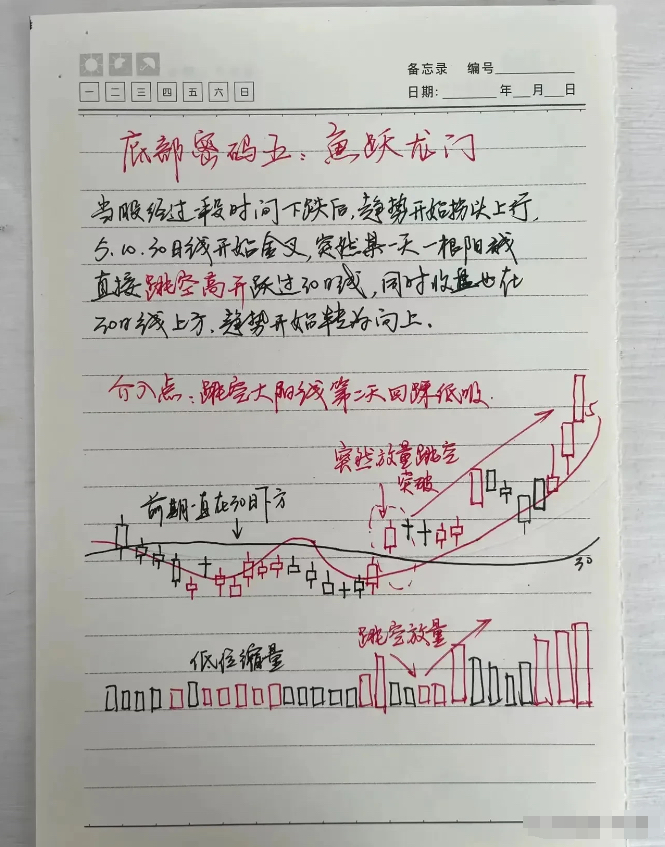 备忘录 编号
一 二 三 四 五 六 日
日期: 年 月 日
底部密码五:鱼跃龙门
当股经过一段时间下跌后,趋势开始拐头上行,
5.10.30日线开始金叉,突然某一天一根阳线
直接跳空高开跃过30日线,同时收盘也在
30日线上方,趋势开始转为向上.
介入点:跳空大阳线第二天回踩低吸.
突然放量跳空
突破
前期一直在30日下方
5
30
跳空放量
低位缩量